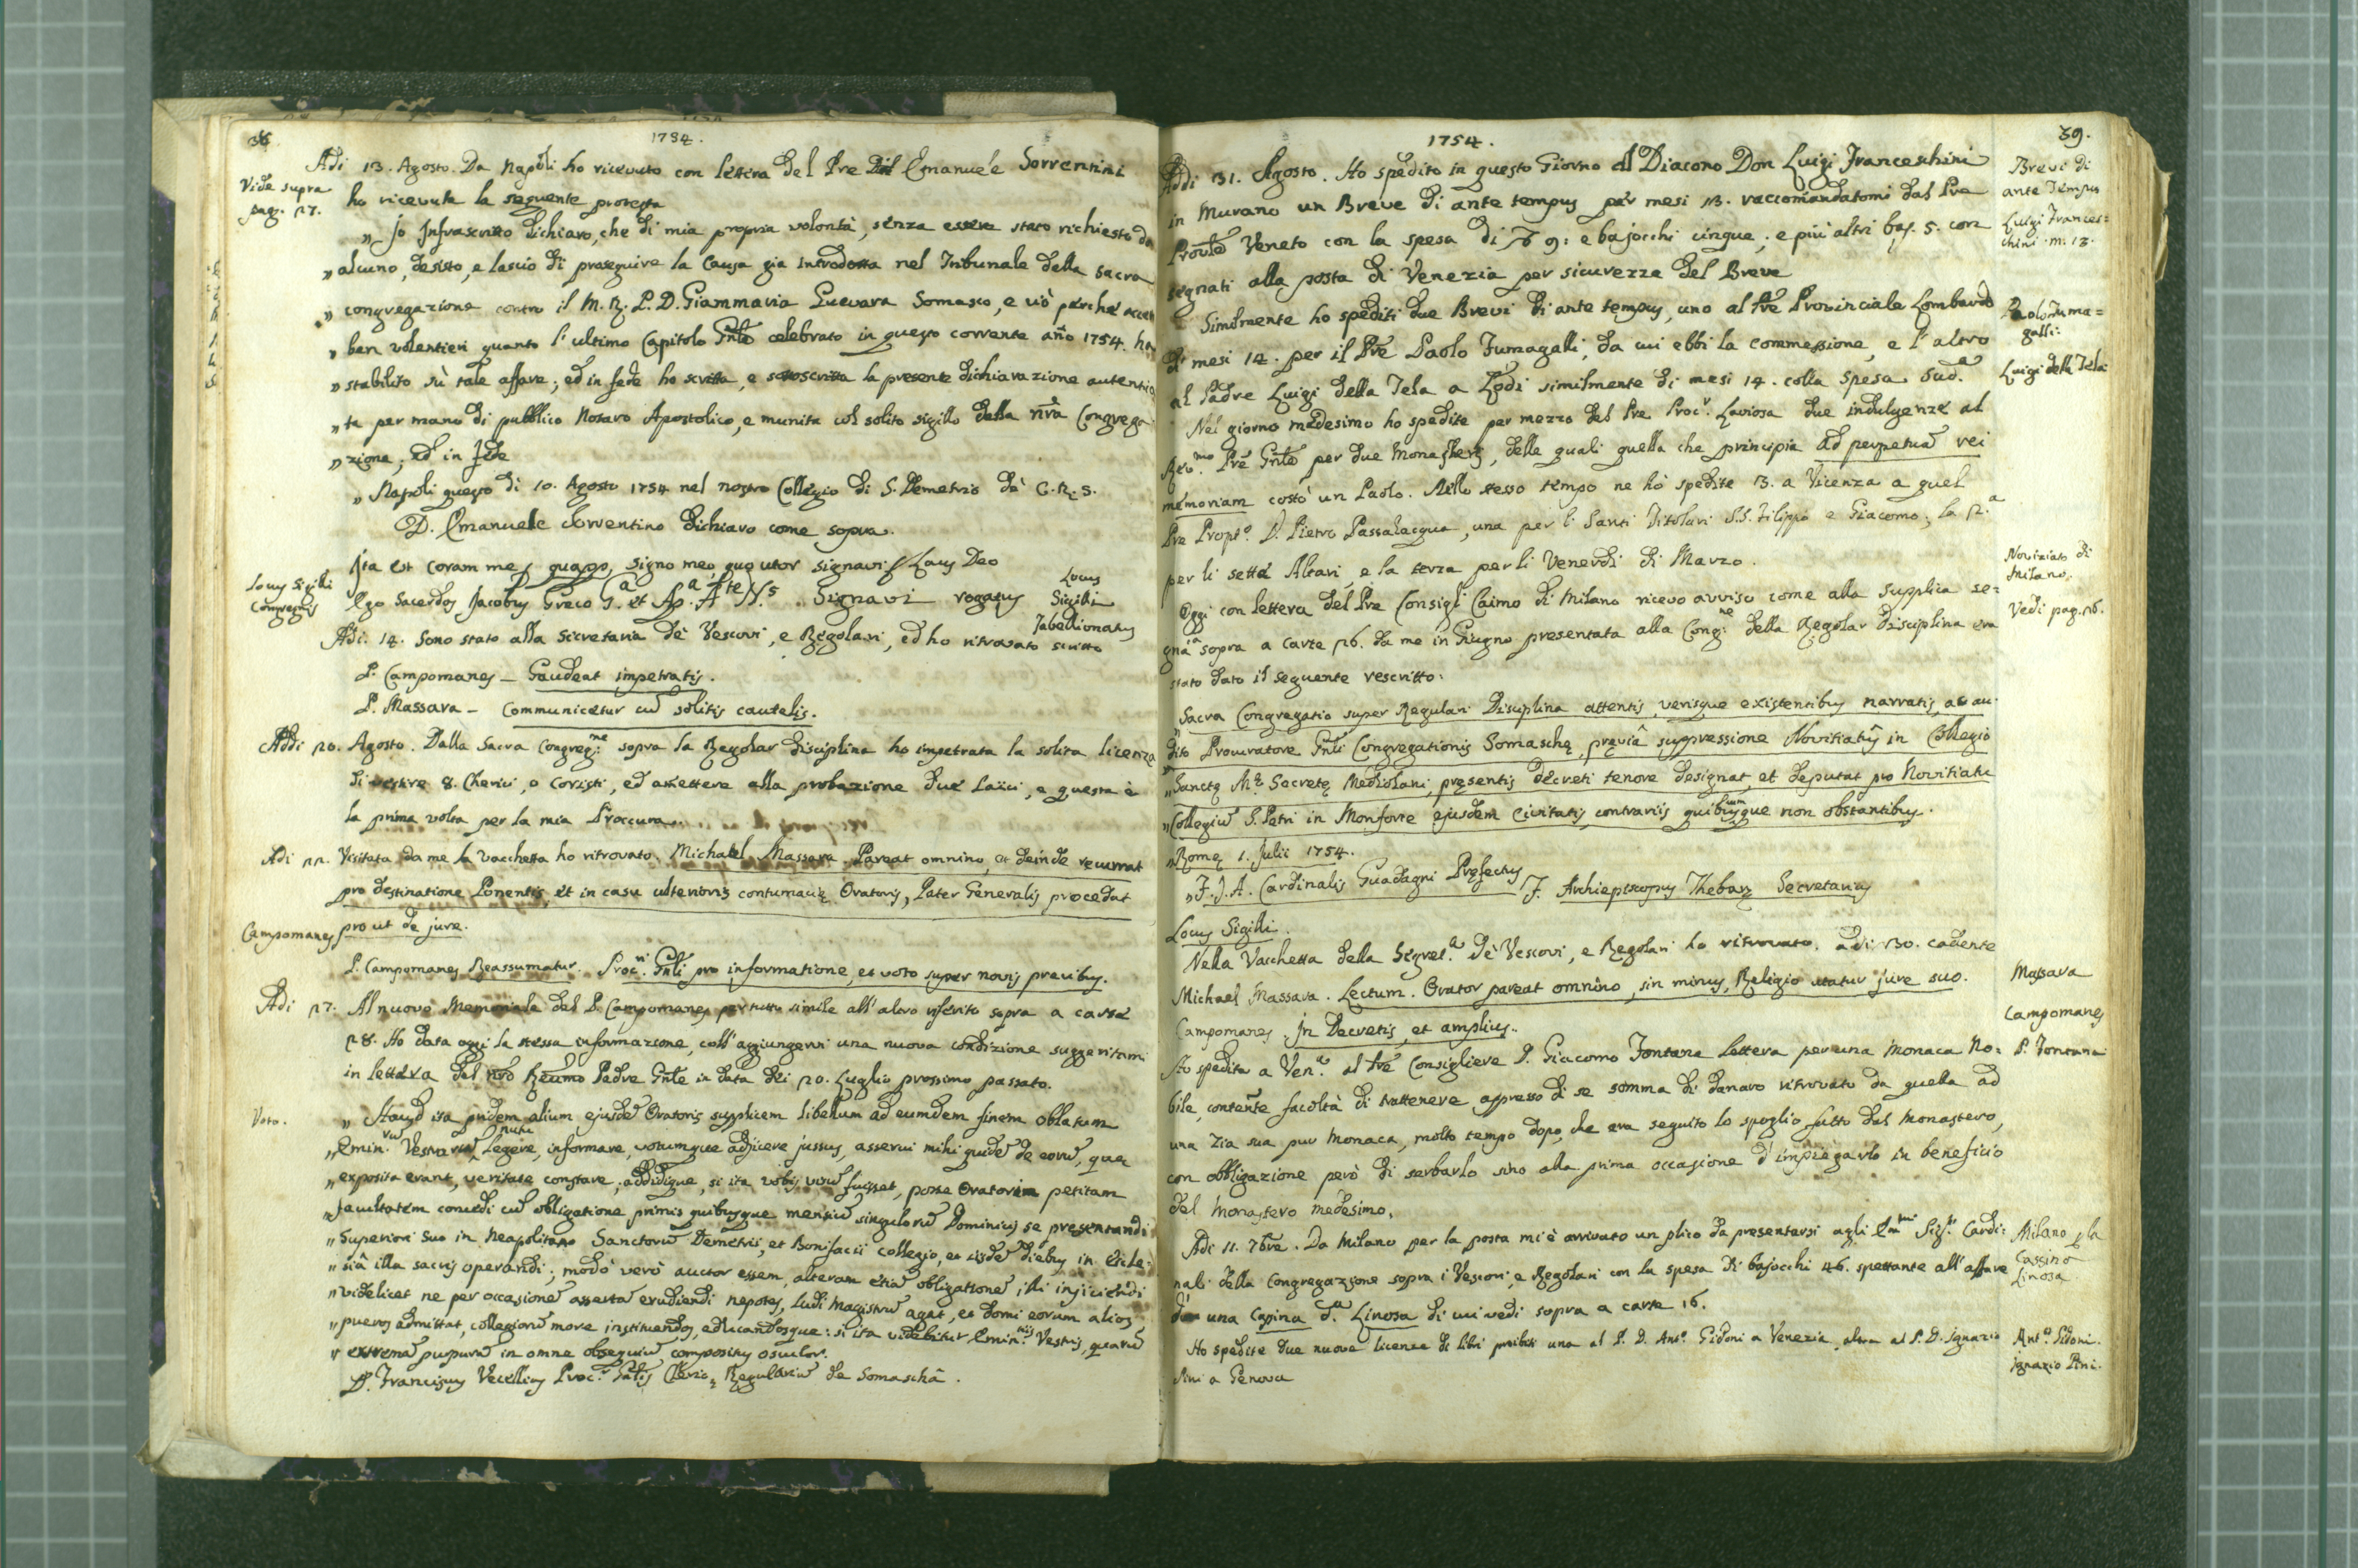 38.
1754.
Adi 13. Agosto. Da Napoli ho ricevuto con lettera del Pre Dn Emanuele Sorrentini
Vide supra
pag. 27.
ho ricevuta la seguente protesta
„ Jo Infrascritto dichiaro, che di mia propria volontà, senza essere stato richiesto da
„ alcuno, desisto, e lascio di proseguire la Causa gia introdotta nel Tribunale della Sacra
„ congregazione contro il M. R. P. D. Giammaria Guevara Somasco, e ciò perchè
„ ben volentieri quanto l'ultimo Capitolo Gnle celebrato in questo corrente año 1754. ha
„ stabilito sù tale affare; ed in fede ho scritta, e sottoscritta la presente dichiarazione autentica
„ ta per mano di pubblico Notaro Apostolico, e munita col solito sigillo della nrã Congrega
„ zione; ed in fede
„ Napoli questo dì 10. Agosto 1754 nel nostro Collegio di S. Demetrio de' C. R. S.
D. Emanuele Sorrentino dichiaro come sopra.
Ita est coram me, signo meo, quo utor signavi Laus Deo
Locus Sigilli
Congregnis
Ego Sacerdos Jacobus Greco Signavi rogatus
Locus
Sigilli
Tabellionatus
Adi. 14. Sono stato alla Secretaria de' Vescovi, e Regolari, ed ho ritrovato scritto
P. Campomanes – Gaudeat impetratis.
P. Massara – Communicetur cu solitis cautelis.
Addi 20. Agosto. Dalla Sacra Congreg:ne sopra la Regolar disciplina ho impetrata la solita licenza
di vestire 8. Cherici, o Coristi, ed ammettere alla probazione due Laici, e questa è
la prima volta per la mia Proccura.
Adi 22. Visitata da me la vacchetta ho ritrovato Michael Massara. Pareat omnino, et deinde recurrat
pro destinatione Ponentis, et in casu ulterioris contumaciæ Oratoris, Pater Generalis procedat
prout de jure.
Campomanes
P. Campomanes Reassumatur. Proc.ri Gnli pro informatione, et voto super novis precibus.
Adi 27. Al nuovo Memoriale del P. Campomanes per tutto simile all'altro riferito sopra a carte
28. Ho data oggi la stessa informazione, coll'aggiungervi una nuova condizione suggeritami
in lettera del nrõ Reumo Padre Gnle in data dei 20. Luglio prossimo passato.
Voto.
„ Haud ita pridem alium ejusde Oratoris supplicem libellum ad eumdem finem oblatum
„ Emin. Vestraru nutu Legere, informare, votumque adjicere jussus, asserui mihi quide de eoru, quæ
„ exposita erant, veritate constare; addidique, si ita vobis visu fuisset, posse Oratorem petitam
„ facultatem concedi cu obligatione primis quibusque mensiu singuloru Dominicis se presentandi
„ Superiori Suo in Neapolitano Sanctoru Demetrii, et Bonifacii collegio, et iisde diebus in Eccle:
„ siâ illa sacris operandi; modò verò auctor essem, alteram etia obligatione illi injiciendi
„ videlicet ne per occasione asserta erudiendi nepotes, Ludi Magistru agat, et domi eorum alios
„ pueros admittat, collegioru more instituendos, educandosque: si ita videbitur Emin.tiis Vestris, quaru
„ extrema purpura in omne obsequiu compositus osculor.
D. Franciscus Vecellius Proc.r Gñlis Cleric. Regulariu de Somaschâ.
1754.
39.
Addi 31. Agosto. Ho spedito in questo Giorno al Diacono Don Luigi Franceschini
Brevi di
ante Tempus
in Murano un Breve di ante tempus per mesi 13. raccomandatomi dal Pre
Luigi Frances=
chini. m. 13.
Provle Veneto con la spesa di 9: e bajocchi cinque; e più altri baj. 5. con
segnati alla posta di Venezia per sicurezza del Breve
Similmente ho spediti due Brevi di ante tempus, uno al Pre Provinciale Lombardo
Paolo Fuma=
galli:
di mesi 14. per il Pre Paolo Fumagalli, da cui ebbi la commessione, e l'altro
Luigi della Tela
al Padre Luigi della Tela a Lodi similmente di mesi 14. colla spesa sud.a
Nel giorno medesimo ho spedite per mezzo del Pre Proc.r Laviosa due indulgenze al
Rev.mo Pre Gnle per due Monasterj, delle quali quella che principia ad perpetua rei
memoriam costò un Paolo. Nello stesso tempo ne hò spedite 3. a Vicenza a quel
Pre Propt.o D. Pietro Passalacqua, una per li Santi Titolari S.S. Filippo e Giacomo; la 2.a
per li sette Altari, e la terza per li Venerdì di Marzo.
Noviziato di
Milano.
Oggi con lettera del Pre Consigli. Caimo di Milano ricevo avviso come alla supplica se=
Vedi pag. 26.
gnata sopra a carte 26. da me in Giugno presentata alla Cong:ne della Regolar Disciplina era
stato dato il seguente rescritto:
„ Sacra Congregatio super Regulari Disciplina attentis, verisque existentibus narratis, ac au-
dito Procuratore Gnli Congregationis Somaschę, pręviâ suppressione Novitiatus in Collegio
„ Sanctę Mę Secretę Mediolani, pręsentis decreti tenore designat, et deputat pro Novitiatu
„ Collegiu S. Petri in Monforte ejusdem Civitatis, contrariis quibuscumque non obstantibus.
„ Romę 1. Julii 1754.
„ F. J. A. Cardinalis Guadagni Pręfectus
J. Archiepiscopus Thebarę Secretarius
Locus Sigilli.
Nella Vacchetta della Segret.a de' Vescovi, e Regolari ho ritrovato adi 30. cadente
Massara
Michael Massara. Lectum. Orator pareat omnino, sin minus, Religio utatur jure suo.
Campomanes
Campomanes. In Decretis, et amplius.
P. Fontana
Ho spedita a Ven.a al Pre Consigliere D. Giacomo Fontana Lettera per una Monaca No=
bile, contente facoltà di trattenere appresso di se somma di denaro ritrovato da quella ad
una Zia sua pur Monaca, molto tempo dopo, che era seguito lo spoglio fatto dal Monastero,
con obbligazione però di serbarlo sino alla prima occasione d'impiegarlo in beneficio
del Monastero medesimo.
Adi 11. 7bre. Da Milano per la posta mi è arrivato un plico da presentarsi agli Em.mi Sig.ri Cardi:
Milano p la
Cassino
Linosa
nali della Congregazione sopra i Vescovi, e Regolari con la spesa di bajocchi 46. spettante all'affare
di una Casina d.a Linosa di cui vedi sopra a carte 16.
Ho spedite due nuove licenze di libri proibiti una al P. D. Ant.o Gidoni a Venezia, altra al P. D. Ignazio
Ant.o Gidoni.
Ignazio Pini.
Pini a Genova